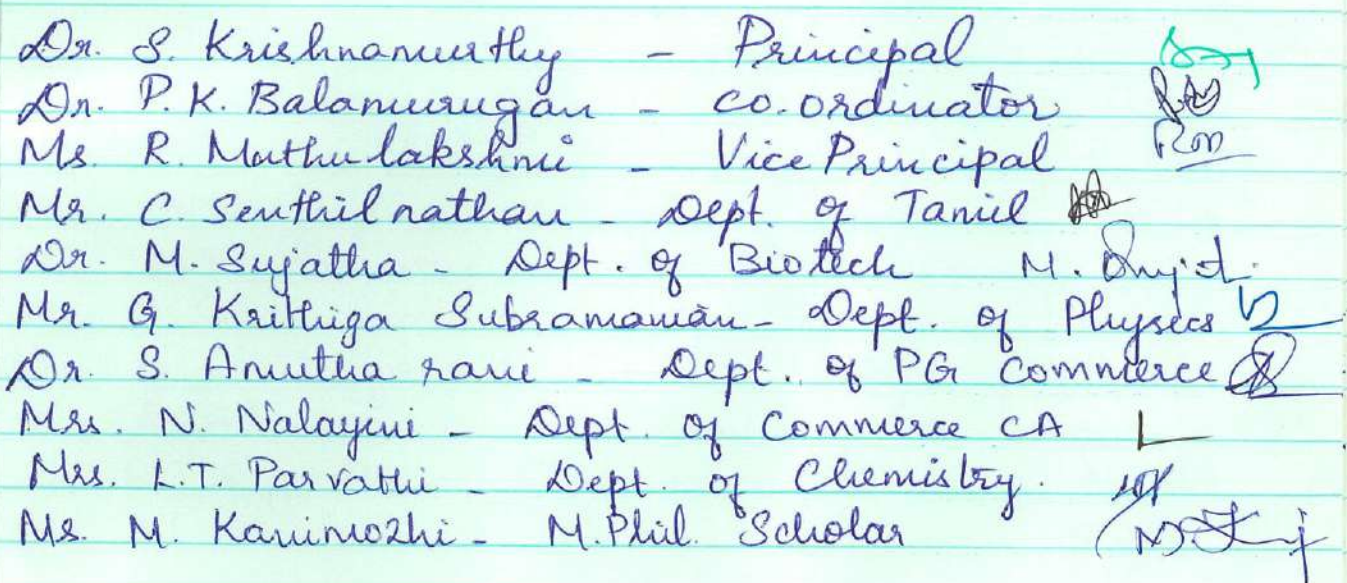 Dr. S. Krishnamurthy - Principal
Dr. P.K. Balamurugan - co.ordinator
Ms. R. Muthulakshmi - Vice Principal
Mr. C. Senthil nathan - Dept. of Tamil
Dr. M. Sujatha - Dept. of Biotech M. Sujat.
Mr. G. Krithiga Subramanian - Dept. of Physics
Dr. S. Amutha rani - Dept. of PG Commerce
Mrs. N. Nalayini - Dept. of Commerce CA
Mrs. L.T. Parvathi - Dept. of Chemistry.
Ms. M. Kanimozhi - M.Phil. Scholar